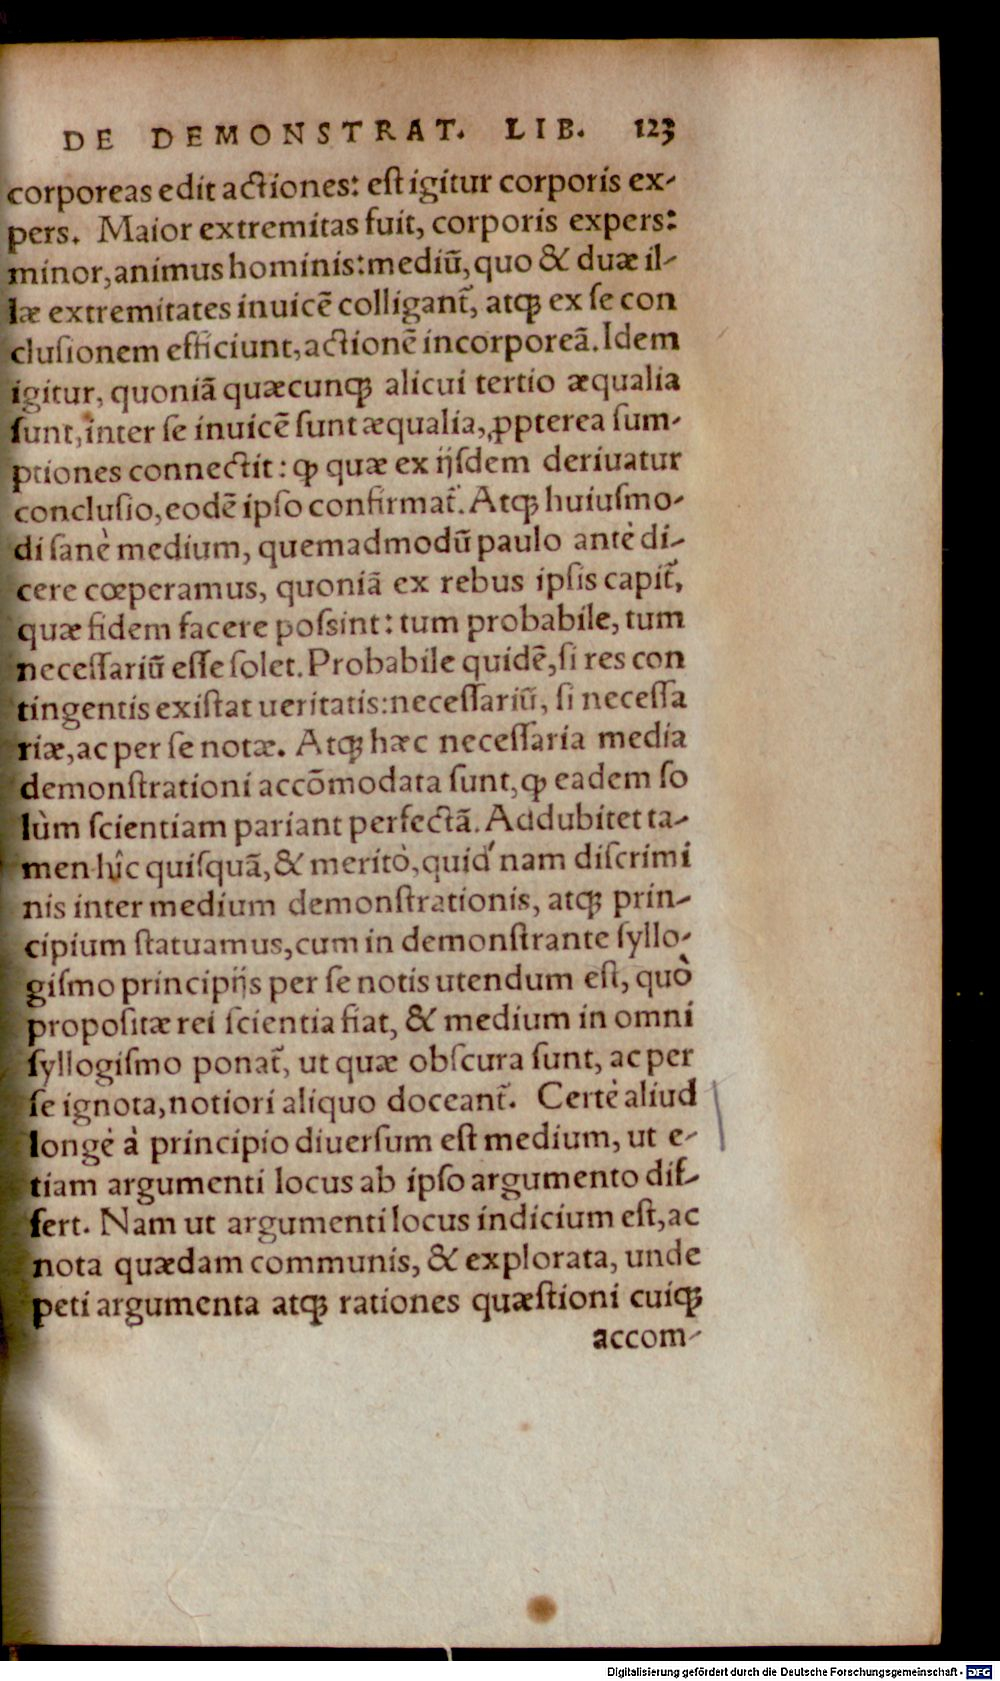 DE DEMONSTRAT. LIB. 123
corporeas edit actiones: est igitur corporis ex-
pers. Maior extremitas fuit, corporis expers:
minor, animus hominis: mediū, quo & duæ il-
læ extremitates inuicē colligant᷑, atqꝫ ex se con
clusionem efficiunt, actionē incorporeā. Idem
igitur, quoniā quæcunqꝫ alicui tertio æqualia
sunt, inter se inuicē sunt æqualia, ꝓpterea sum-
ptiones connectit: ꝙ quæ ex ijsdem deriuatur
conclusio, eodē ipso confirmat᷑. Atqꝫ huiusmo-
di sanè medium, quemadmodū paulo antè di-
cere cœperamus, quoniā ex rebus ipsis capit᷑,
quæ fidem facere possint: tum probabile, tum
necessariū esse solet. Probabile quidē, si res con
tingentis existat ueritatis: necessariū, si necessa
riæ, ac per se notæ. Atqꝫ hæc necessaria media
demonstrationi accōmodata sunt, ꝙ eadem so
lùm scientiam pariant perfectā. Addubitet ta-
men hîc quisquā, & meritò, quid'nam discrimi
nis inter medium demonstrationis, atqꝫ prin-
cipium statuamus, cum in demonstrante syllo-
gismo principijs per se notis utendum est, quò
propositæ rei scientia fiat, & medium in omni
syllogismo ponat᷑, ut quæ obscura sunt, ac per
se ignota, notiori aliquo doceant᷑. Certè aliud
longè à principio diuersum est medium, ut e-
tiam argumenti locus ab ipso argumento dif-
fert. Nam ut argumenti locus indicium est, ac
nota quædam communis, & explorata, unde
peti argumenta atqꝫ rationes quæstioni cuiqꝫ
accom-
Digitalisierung gefördert durch die Deutsche Forschungsgemeinschaft - DFG